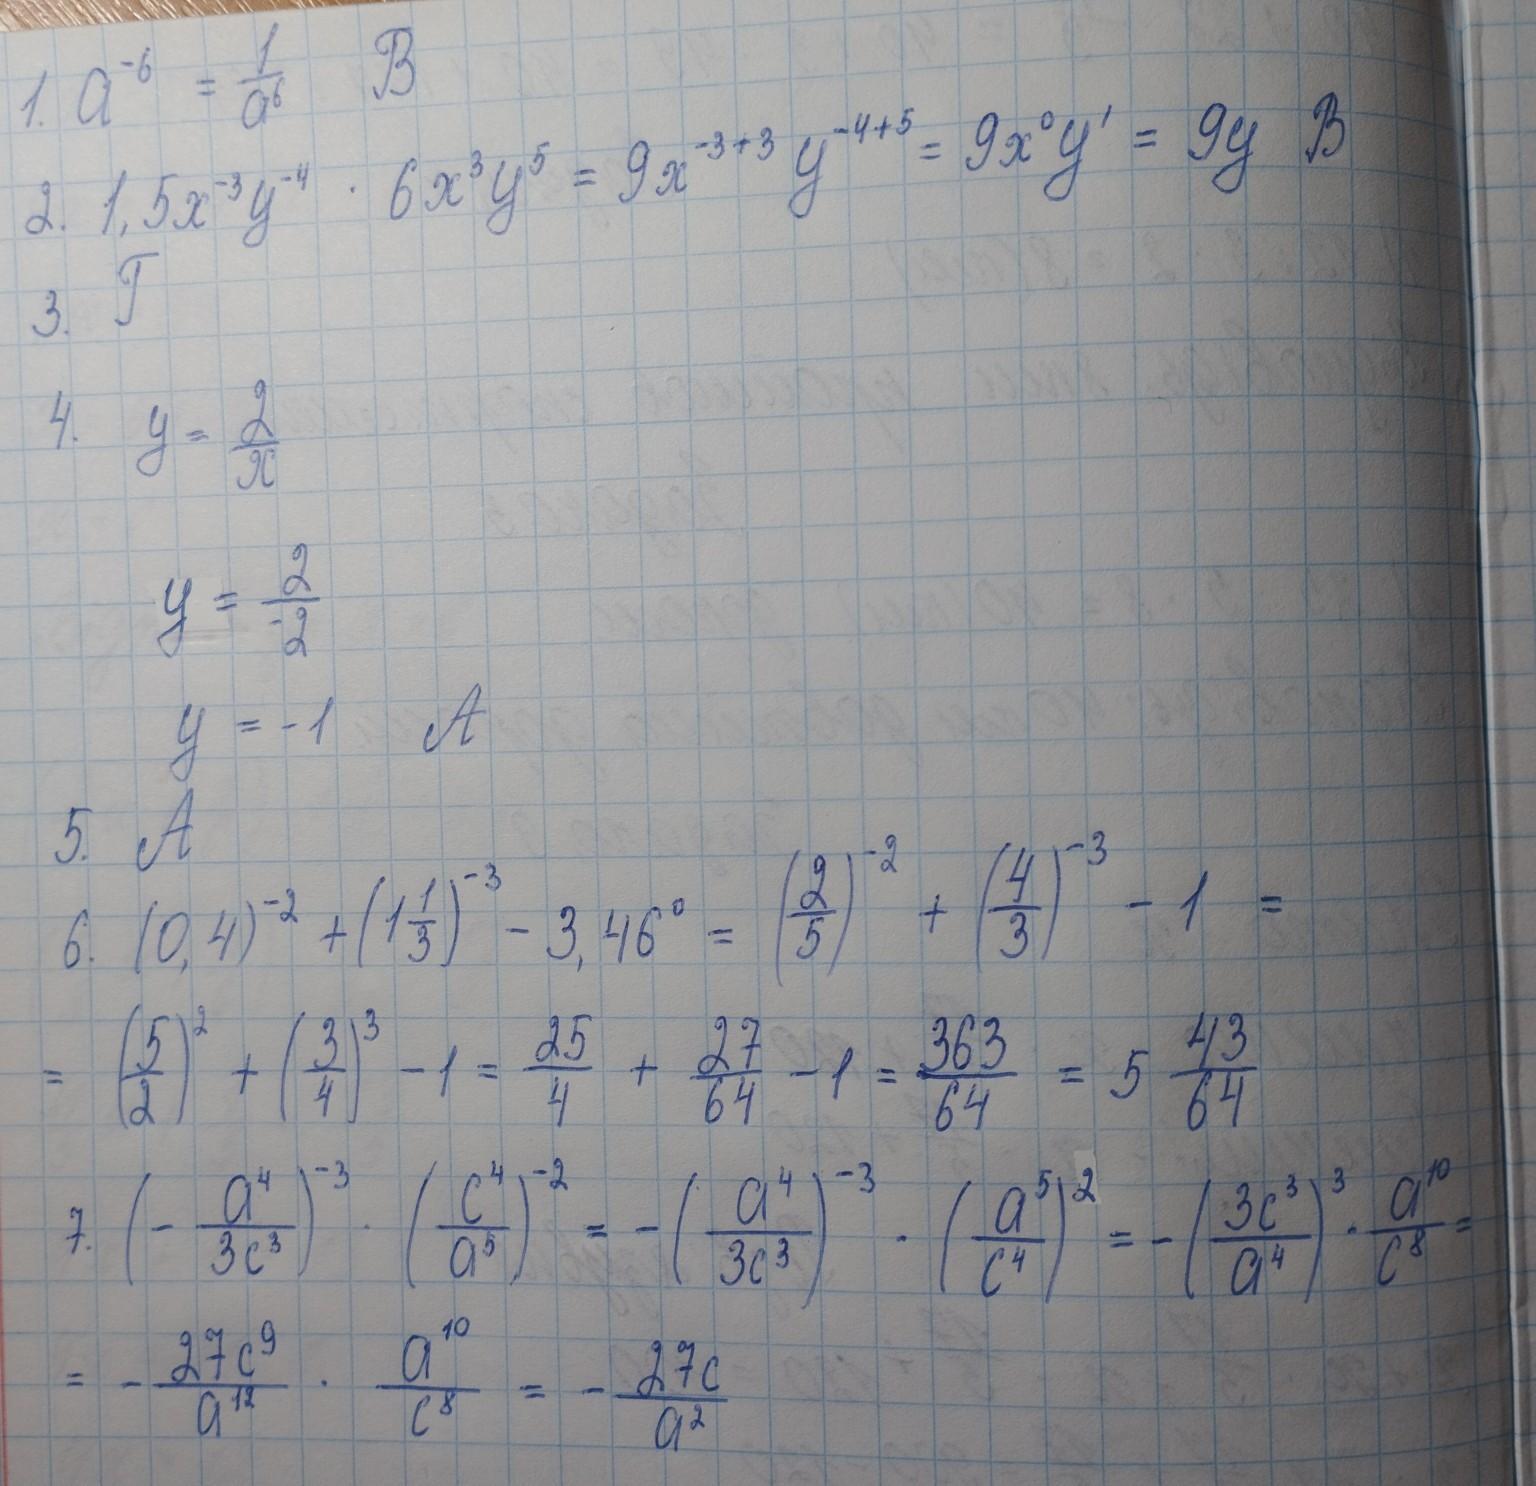 1. a⁻⁶ = 1/a⁶ В
2. 1,5x⁻³y⁻⁴ · 6x³y⁵ = 9x⁻³⁺³ y⁻⁴⁺⁵ = 9x⁰y¹ = 9y В
3. Г
4. y = 2/x
y = 2/-2
y = -1 А
5. А
6. (0,4)⁻² + (1 1/3)⁻³ - 3,46⁰ = (2/5)⁻² + (4/3)⁻³ - 1 =
= (5/2)² + (3/4)³ - 1 = 25/4 + 27/64 - 1 = 363/64 = 5 43/64
7. (- a⁴/3c³)⁻³ · (c⁴/a⁵)⁻² = -(a⁴/3c³)⁻³ · (a⁵/c⁴)² = -(3c³/a⁴)³ · a¹⁰/c⁸ =
= - 27c⁹/a¹² · a¹⁰/c⁸ = - 27c/a²